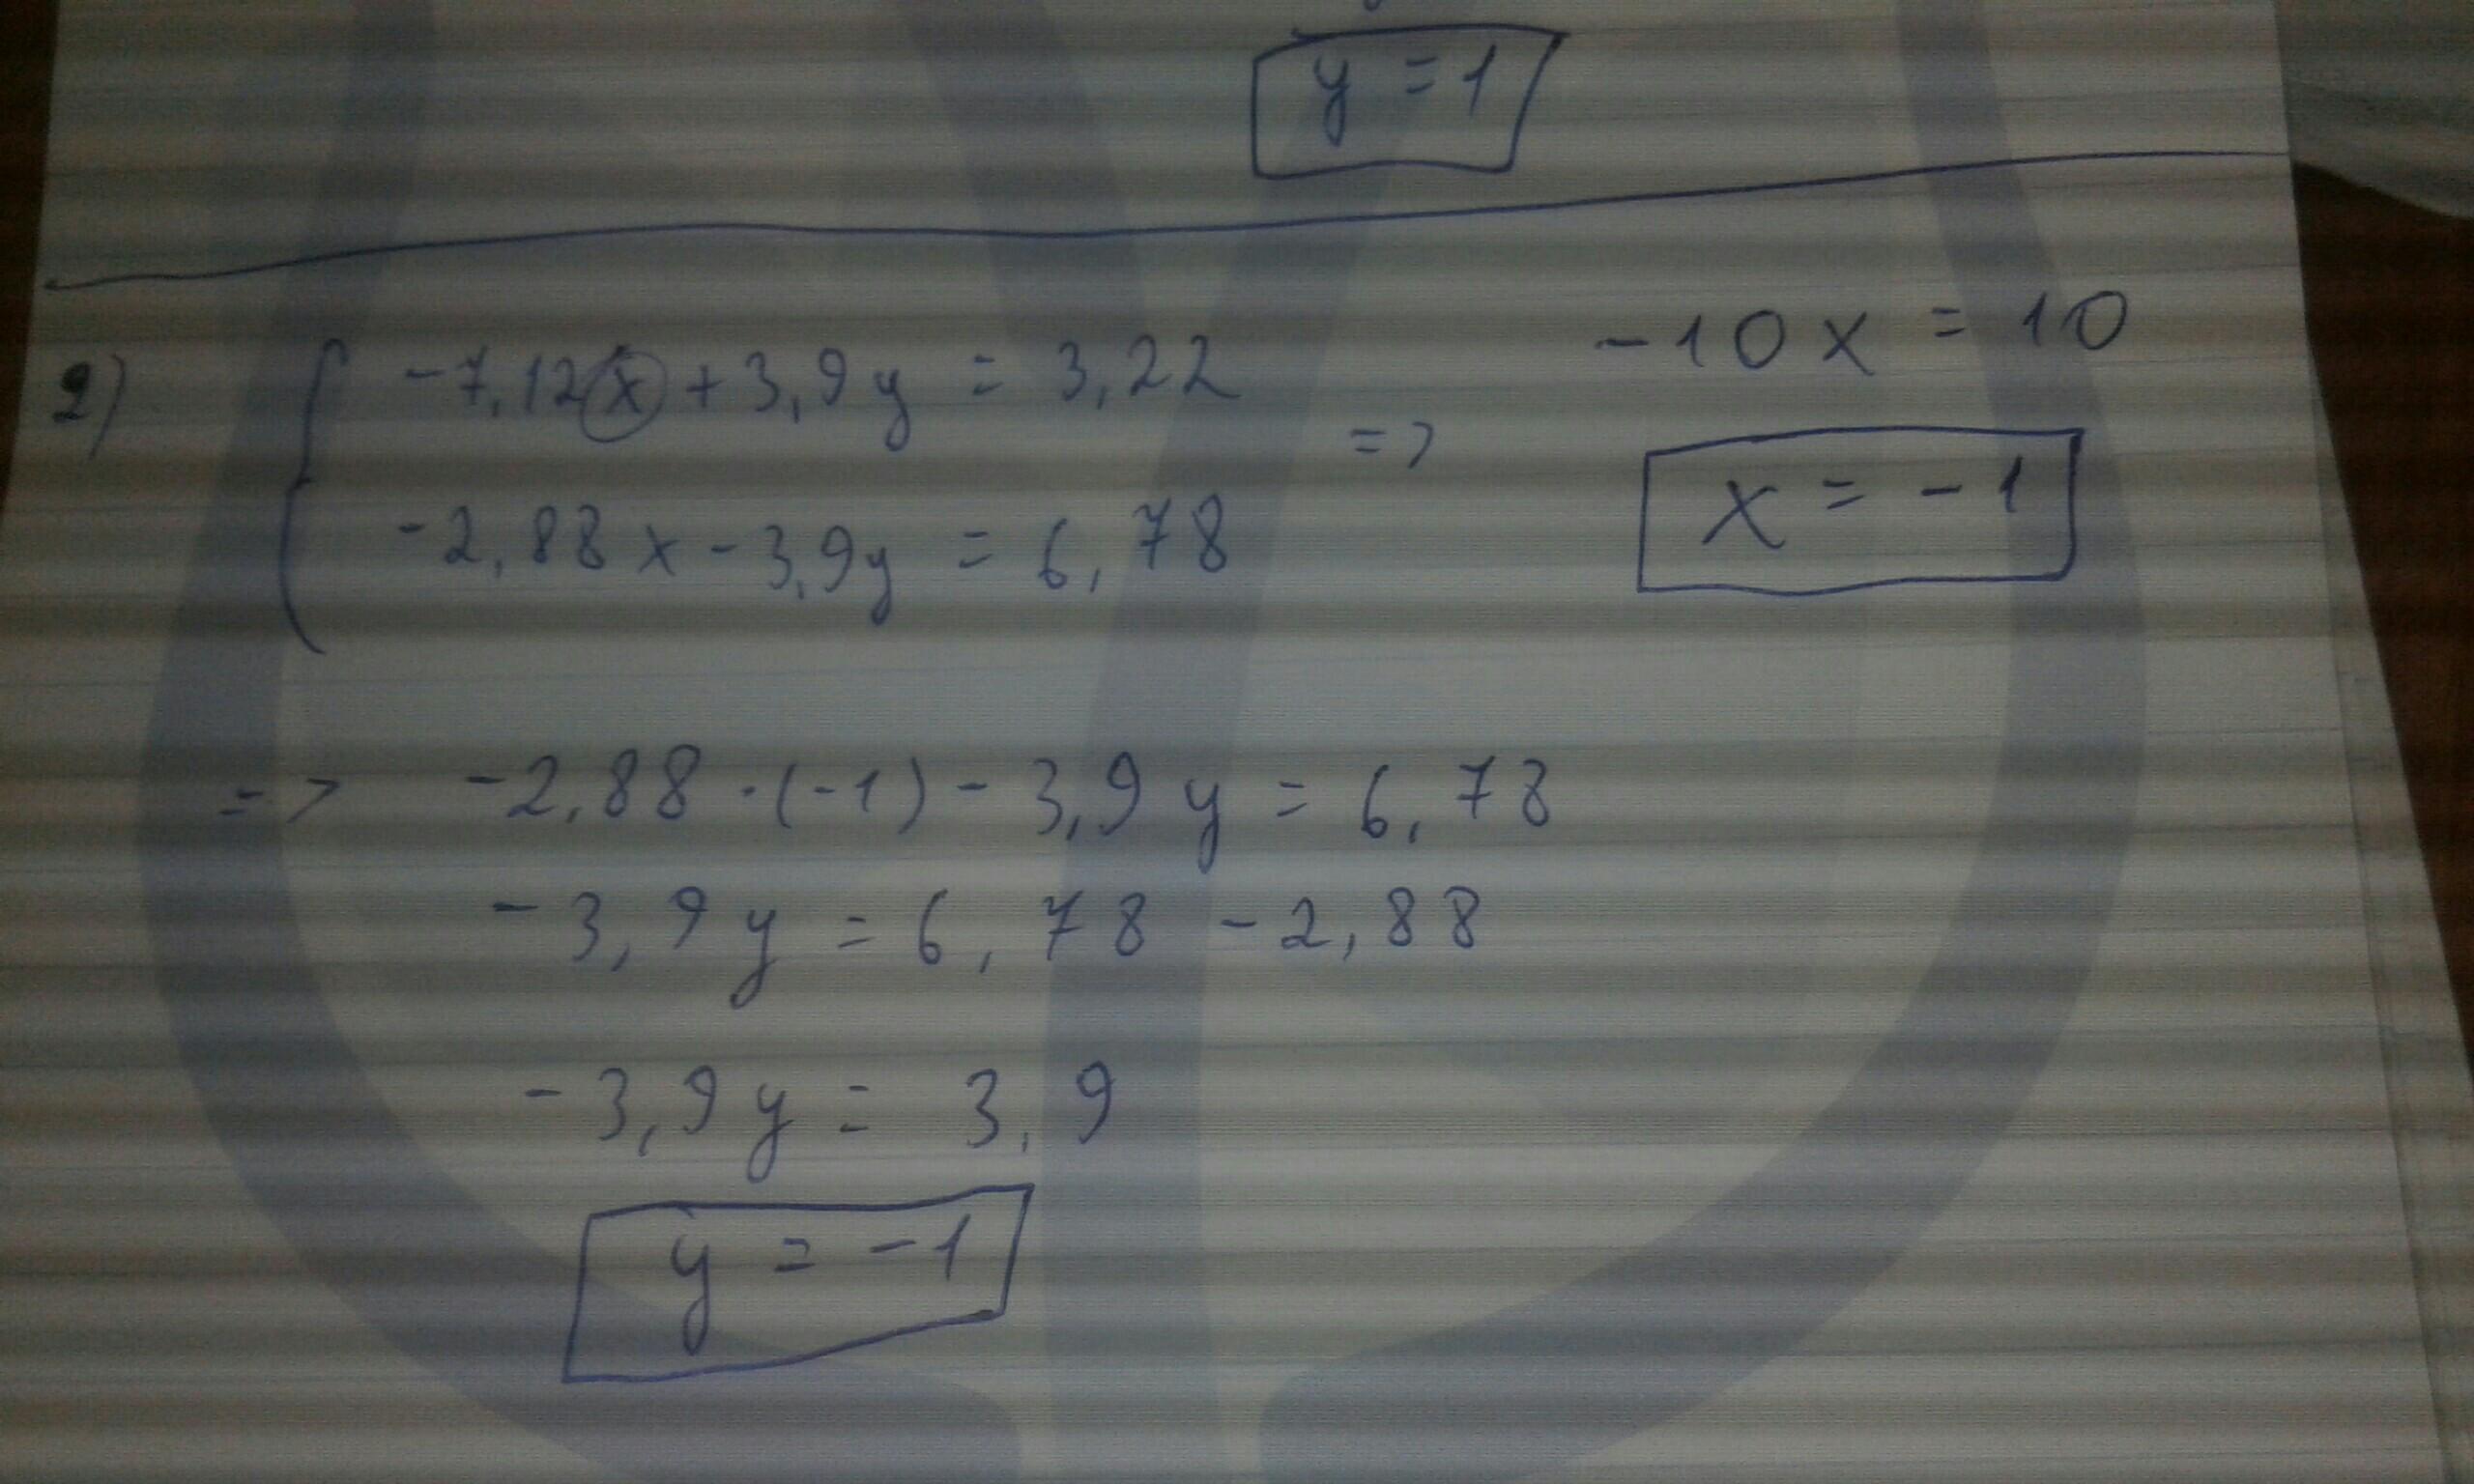 y = 1
2)
-7,12x + 3,9y = 3,22
-2,88x - 3,9y = 6,78
=>
-10x = 10
x = -1
=> -2,88 · (-1) - 3,9y = 6,78
-3,9y = 6,78 - 2,88
-3,9y = 3,9
y = -1